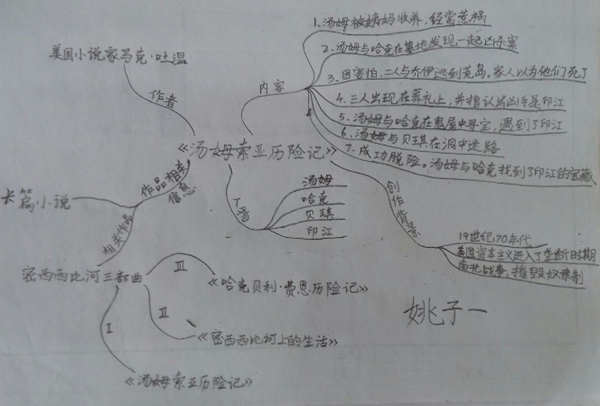 美国小说家马克·吐温
作者
内容
1.汤姆被姨妈收养,经常荒祸
2.汤姆与哈克在墓地发现一起凶杀案
3.因害怕,二人与乔伊逃到荒岛,家人以为他们死了
4.三人出现在葬礼上,并指认凶手是印江
5.汤姆与哈克在鬼屋中寻宝,遇到了印江
6.汤姆与贝琪在洞中迷路
7.成功脱险。汤姆与哈克找到了印江的宝藏
《汤姆索亚历险记》
作品相关
信息
长篇小说
人物
汤姆
哈克
贝琪
印江
创作背景
19世纪70年代
美国资本主义进入了垄断时期
南北战争,摧毁奴隶制
相关作品
密西西比河三部曲
III
《哈克贝利·费恩历险记》
II
《密西西比河上的生活》
I
《汤姆索亚历险记》
姚子一